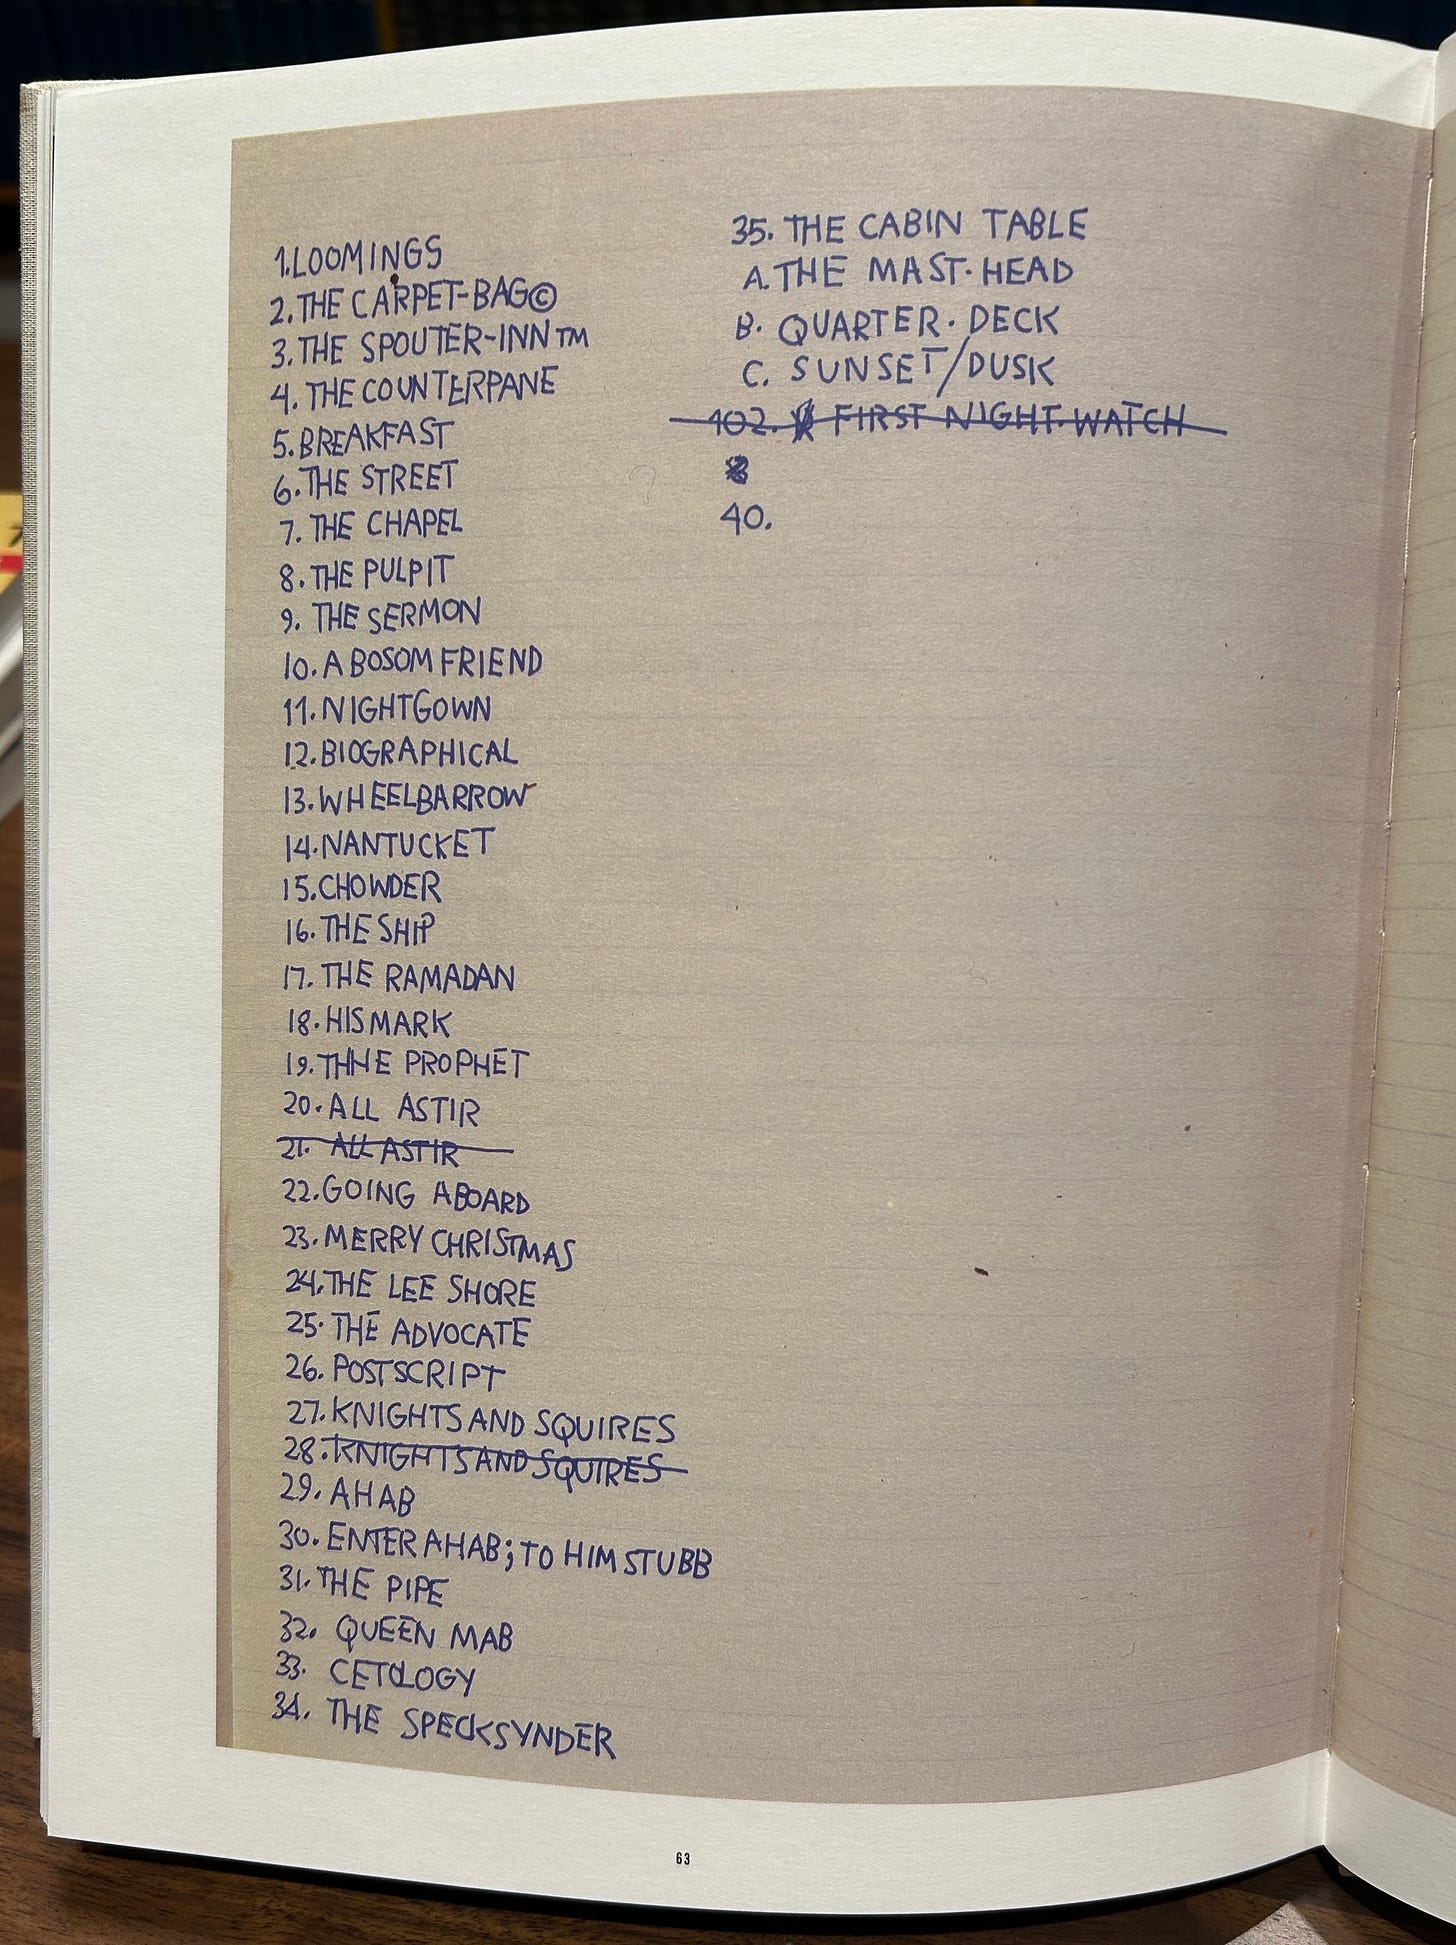 1. LOOMINGS
2. THE CARPET-BAG©
3. THE SPOUTER-INN™
4. THE COUNTERPANE
5. BREAKFAST
6. THE STREET
7. THE CHAPEL
8. THE PULPIT
9. THE SERMON
10. A BOSOM FRIEND
11. NIGHTGOWN
12. BIOGRAPHICAL
13. WHEELBARROW
14. NANTUCKET
15. CHOWDER
16. THE SHIP
17. THE RAMADAN
18. HIS MARK
19. THHE PROPHET
20. ALL ASTIR
21. ALL ASTIR
22. GOING ABOARD
23. MERRY CHRISTMAS
24. THE LEE SHORE
25. THE ADVOCATE
26. POSTSCRIPT
27. KNIGHTS AND SQUIRES
28. KNIGHTS AND SQUIRES
29. AHAB
30. ENTER AHAB; TO HIM STUBB
31. THE PIPE
32. QUEEN MAB
33. CETOLOGY
34. THE SPECKSYNDER
35. THE CABIN TABLE
A. THE MAST·HEAD
B. QUARTER·DECK
C. SUNSET/DUSK
102. FIRST NIGHT·WATCH
40.
63